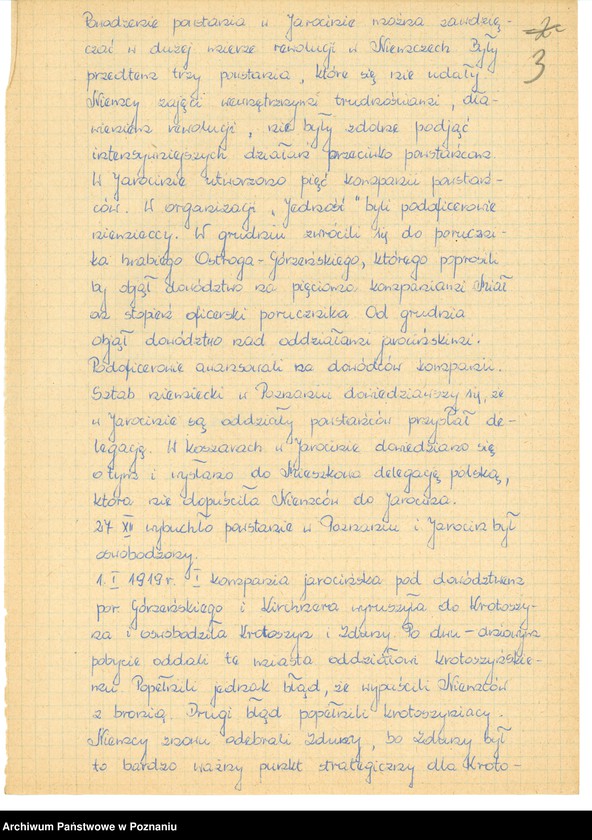 Powodzenie powstania w Jarocinie można zawdzię-
czać w dużej mierze rewolucji w Niemczech. Były
przedtem trzy powstania, które się nie udały.
Niemcy zajęci wewnętrznymi trudnościami, dła-
wieniem rewolucji, nie były zdolne podjąć
intensywniejszych działań przeciwko powstańcom.
W Jarocinie utworzono pięć kompanii powstań-
ców. W organizacji "Jedność" byli podoficerowie
niemieccy. W grudniu zwrócili się do poruczni-
ka hrabiego Ostroga-Gorzeńskiego, którego poprosili
by objął dowództwo na pięcioma kompaniami. Miał
on stopień oficerski porucznika. Od grudnia
objął dowództwo nad oddziałami jarocińskimi.
Podoficerowie awansowali na dowódców kompanii.
Sztab niemiecki w Poznaniu dowiedziawszy się, że
w Jarocinie są oddziały powstańców przysłał de-
legację. W koszarach w Jarocinie dowiedziano się
o tym i wysłano do Mieszkowa delegację polską,
która nie dopuściła Niemców do Jarocina.
27 XII wybuchło powstanie w Poznaniu i Jarocin był
oswobodzony.
1. I 1919 r. I kompania jarocińska pod dowództwem
por. Gorzeńskiego i Kirchnera wyruszyła do Krotoszy-
na i oswobodziła Krotoszyn i Zduny. Po dwu-dniowym
pobycie oddali te miasta oddziałowi krotoszyńskie-
mu. Popełnili jednak błąd, że wypuścili Niemców
z bronią. Drugi błąd popełnili krotoszyniacy.
Niemcy znowu odebrali Zduny, bo Zduny był
to bardzo ważny punkt strategiczny dla Kroto-
2
3
Archiwum Państwowe w Poznaniu